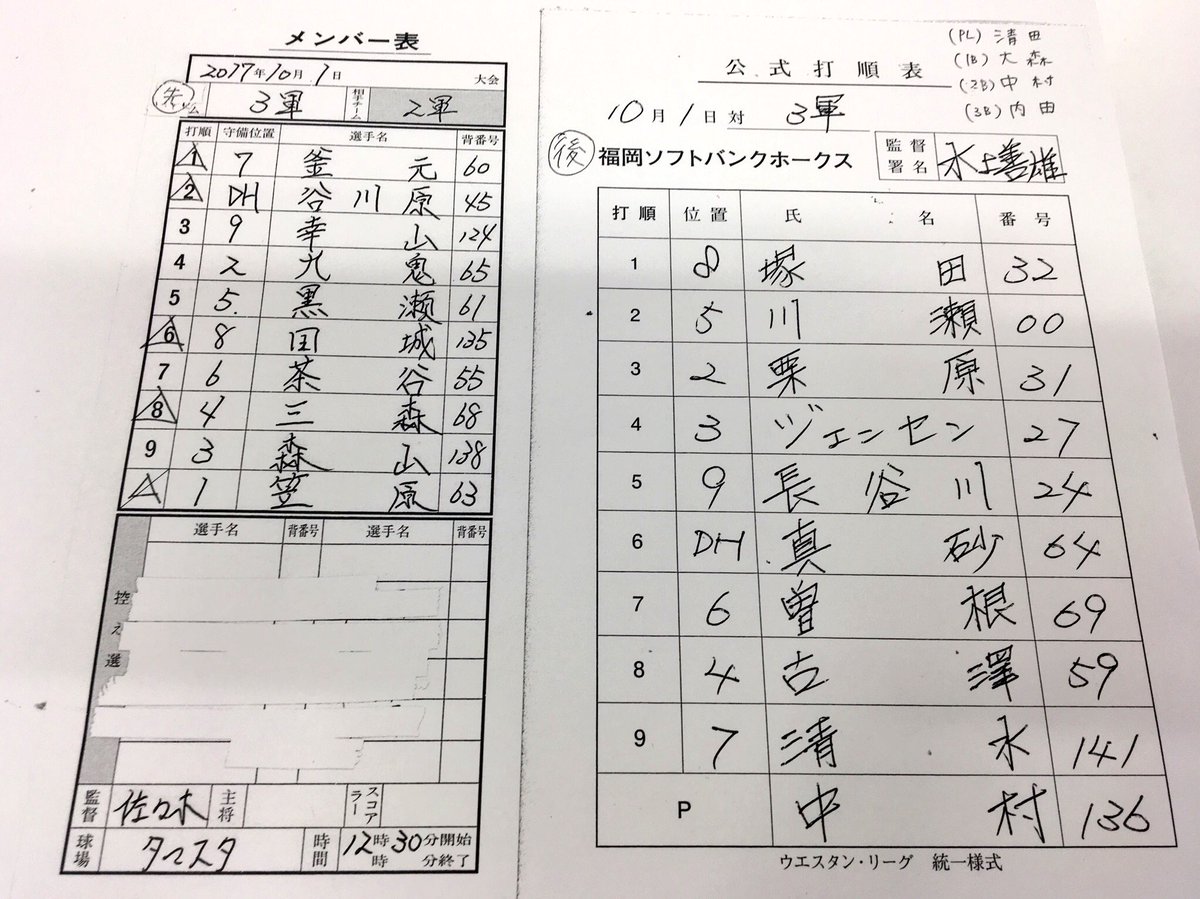 メンバー表
2017年10月1日 大会
先 ム 3軍 相手チーム 2軍
打順 守備位置 選手名 背番号
1 7 釜元 60
2 DH 谷川原 45
3 9 幸山 124
4 2 九鬼 65
5 5 黒瀬 61
6 8 田城 135
7 6 茶谷 55
8 4 三森 68
9 3 森山 138
1 笠原 63
選手名 背番号 選手名 背番号
控え選
監督 佐々木 主将 スコアラー
球場 タマスタ 時間 12時30分開始
時 分終了
(PL) 清田
(1B) 大森
(2B) 中村
(3B) 内田
公式打順表
10月1日対 3軍
後 福岡ソフトバンクホークス 監督署名 水上善雄
打順 位置 氏名 番号
1 8 塚田 32
2 5 川瀬 00
3 2 栗原 31
4 3 ジェンセン 27
5 9 長谷川 24
6 DH 真砂 64
7 6 曽根 69
8 4 古澤 59
9 7 清水 141
P 中村 136
ウエスタン・リーグ 統一様式